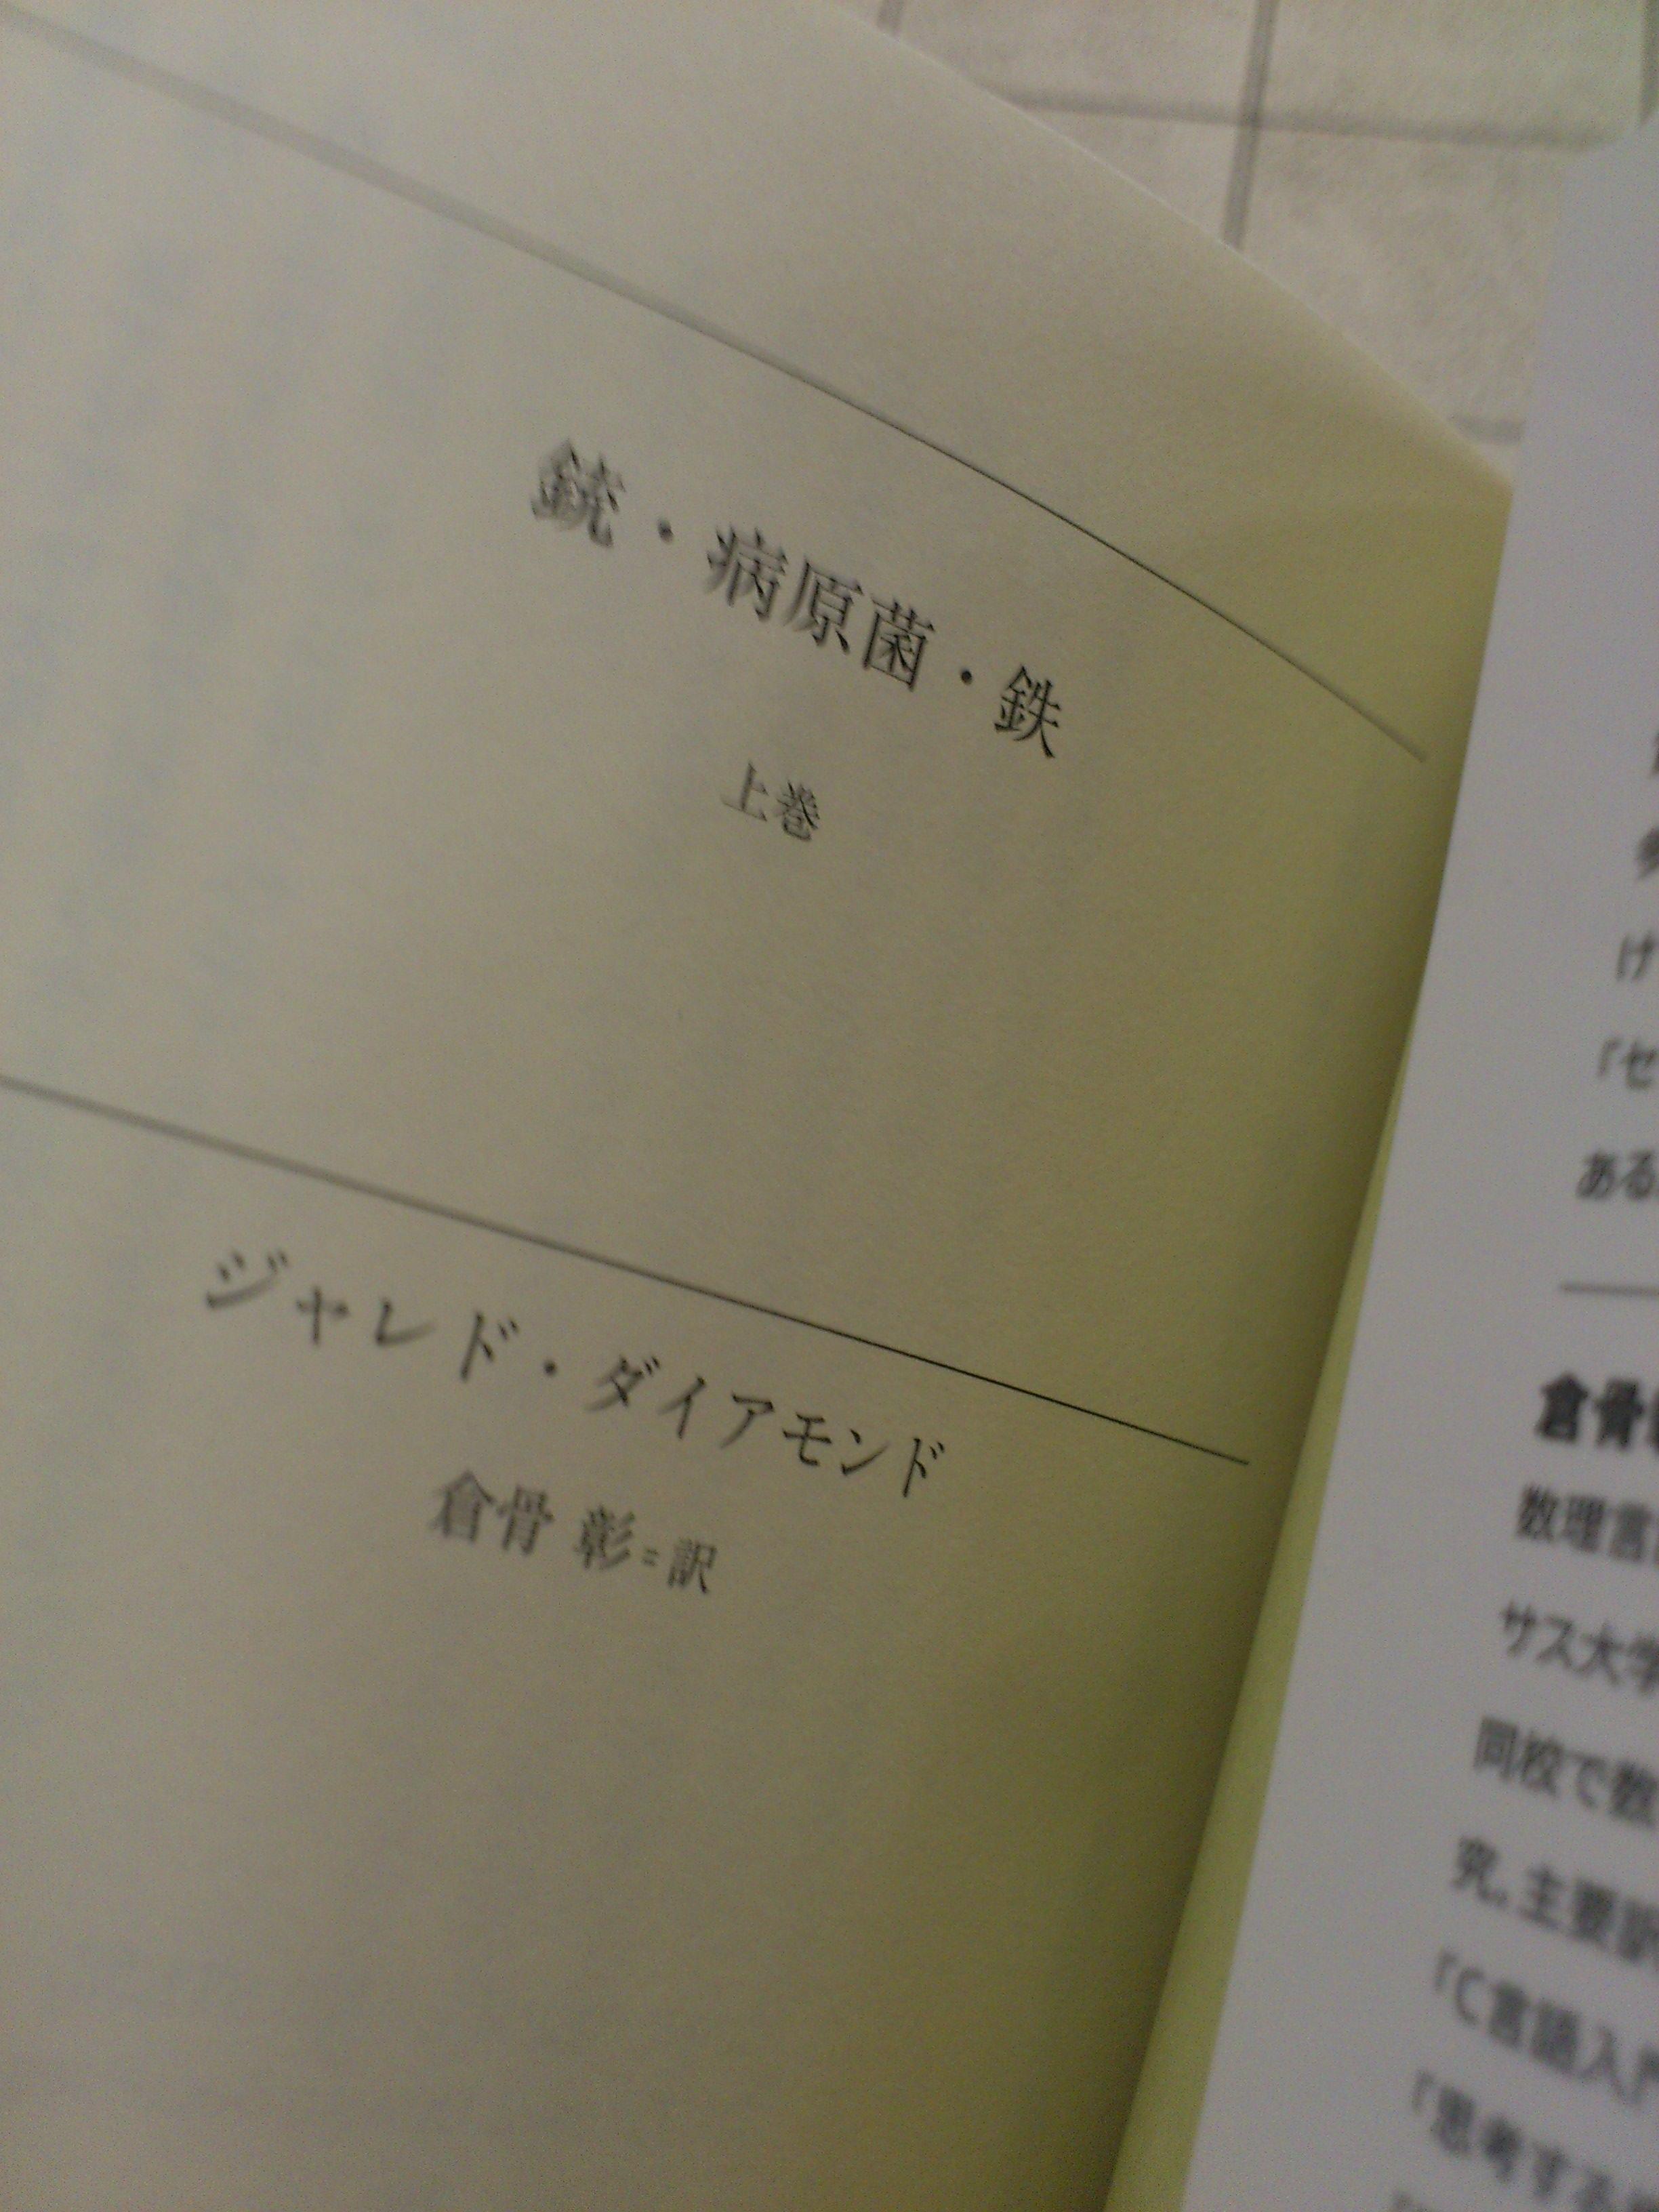 銃・病原菌・鉄
上巻
ジャレド・ダイアモンド
倉骨 彰=訳
げ
「セ
ある
倉骨
数理言
サス大学
同校で数
究。主要訳
「C言語入門
「思考する